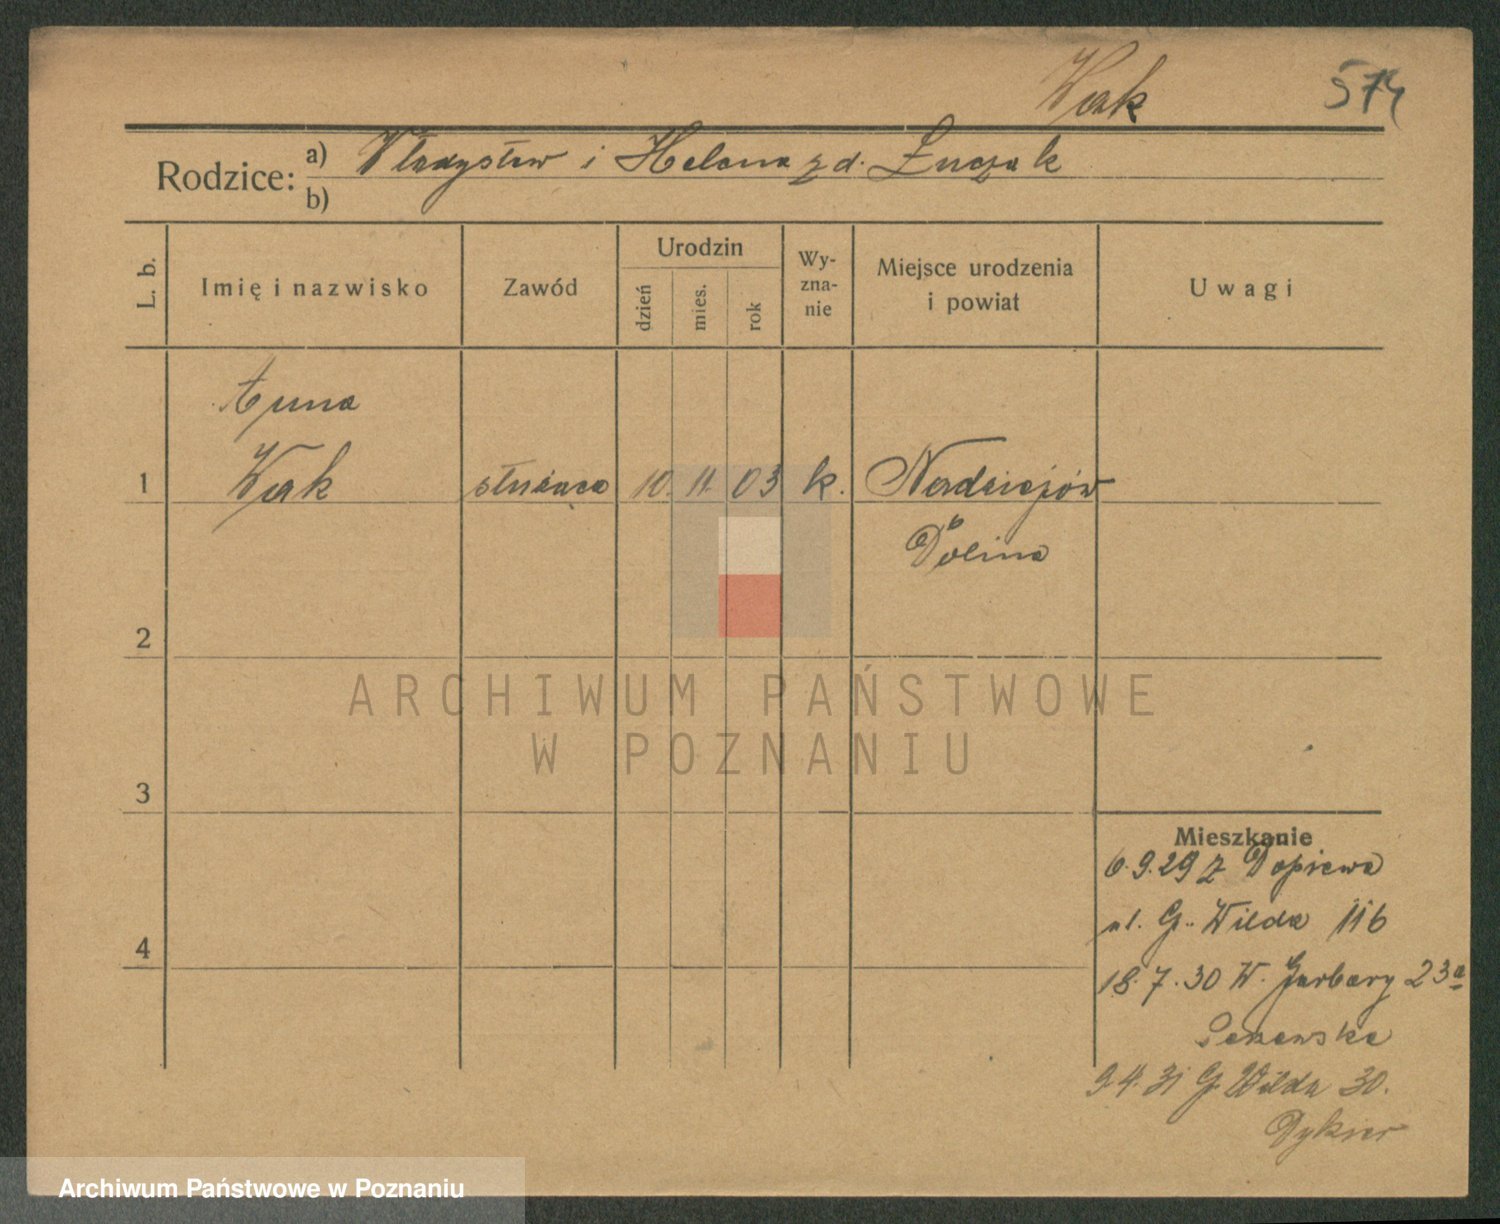 Wak 574
Rodzice: a) Władysław i Helena z d. Łuczak
b)
L. b. Imię i nazwisko Zawód Urodzin dzień mies. rok Wy-zna-nie Miejsce urodzenia i powiat Uwagi
Anna
1 Wak służąca 10. 11. 03 k. Nadziejów
p Dolina
2
ARCHIWUM PAŃSTWOWE
W POZNANIU
3
Mieszkanie
6.9.29 z Dopiewa
ul. G. Wilda 116
4
18.7.30 W. Garbary 23a
9.4.31 G. Wilda 30.
Archiwum Państwowe w Poznaniu